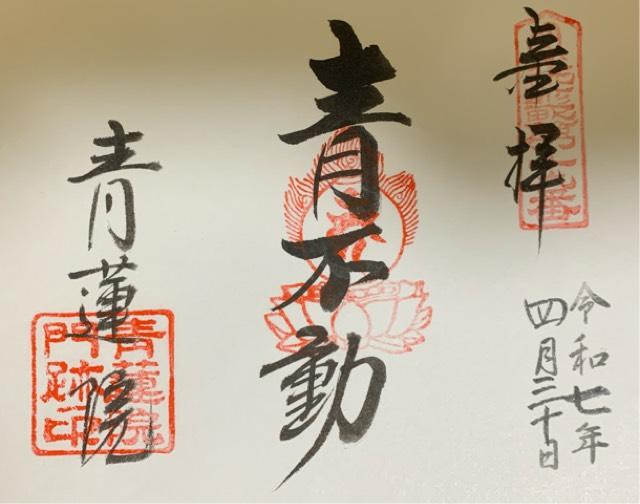 奉拝
令和七年
四月三十日
青不動
青蓮院
青蓮院
門跡印